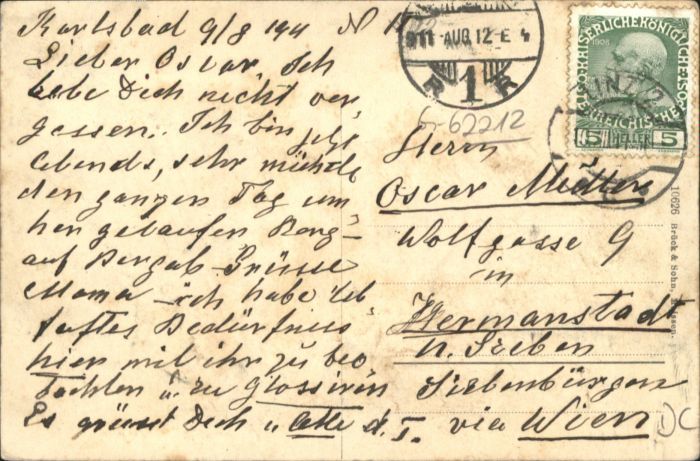 Karlsbad 9/8 1911 N
Lieber Oscar, ich
habe Dich nicht ver-
gessen. Ich bin jetzt
abends, sehr müde
den ganzen Tag um-
her gelaufen Berg-
auf Bergab - Grüsse
Mama - ich habe leb
haftes Bedürfniss
hier mit ihr zu beo
bachten u. zu glossiren
Es grüsst Dich u. alle d. T.
911 AUG. 12 E 4
1
KAISERLICHE KÖNIGLICHE
ÖSTERREICHISCHE
1908
5 HELLER 5
6-62212
Herrn
Oscar
Wolfgasse 9
in
Hermanstadt
n. Sieben
Siebenbürgen
via Wien
10626 Brück & Sohn, Meissen.